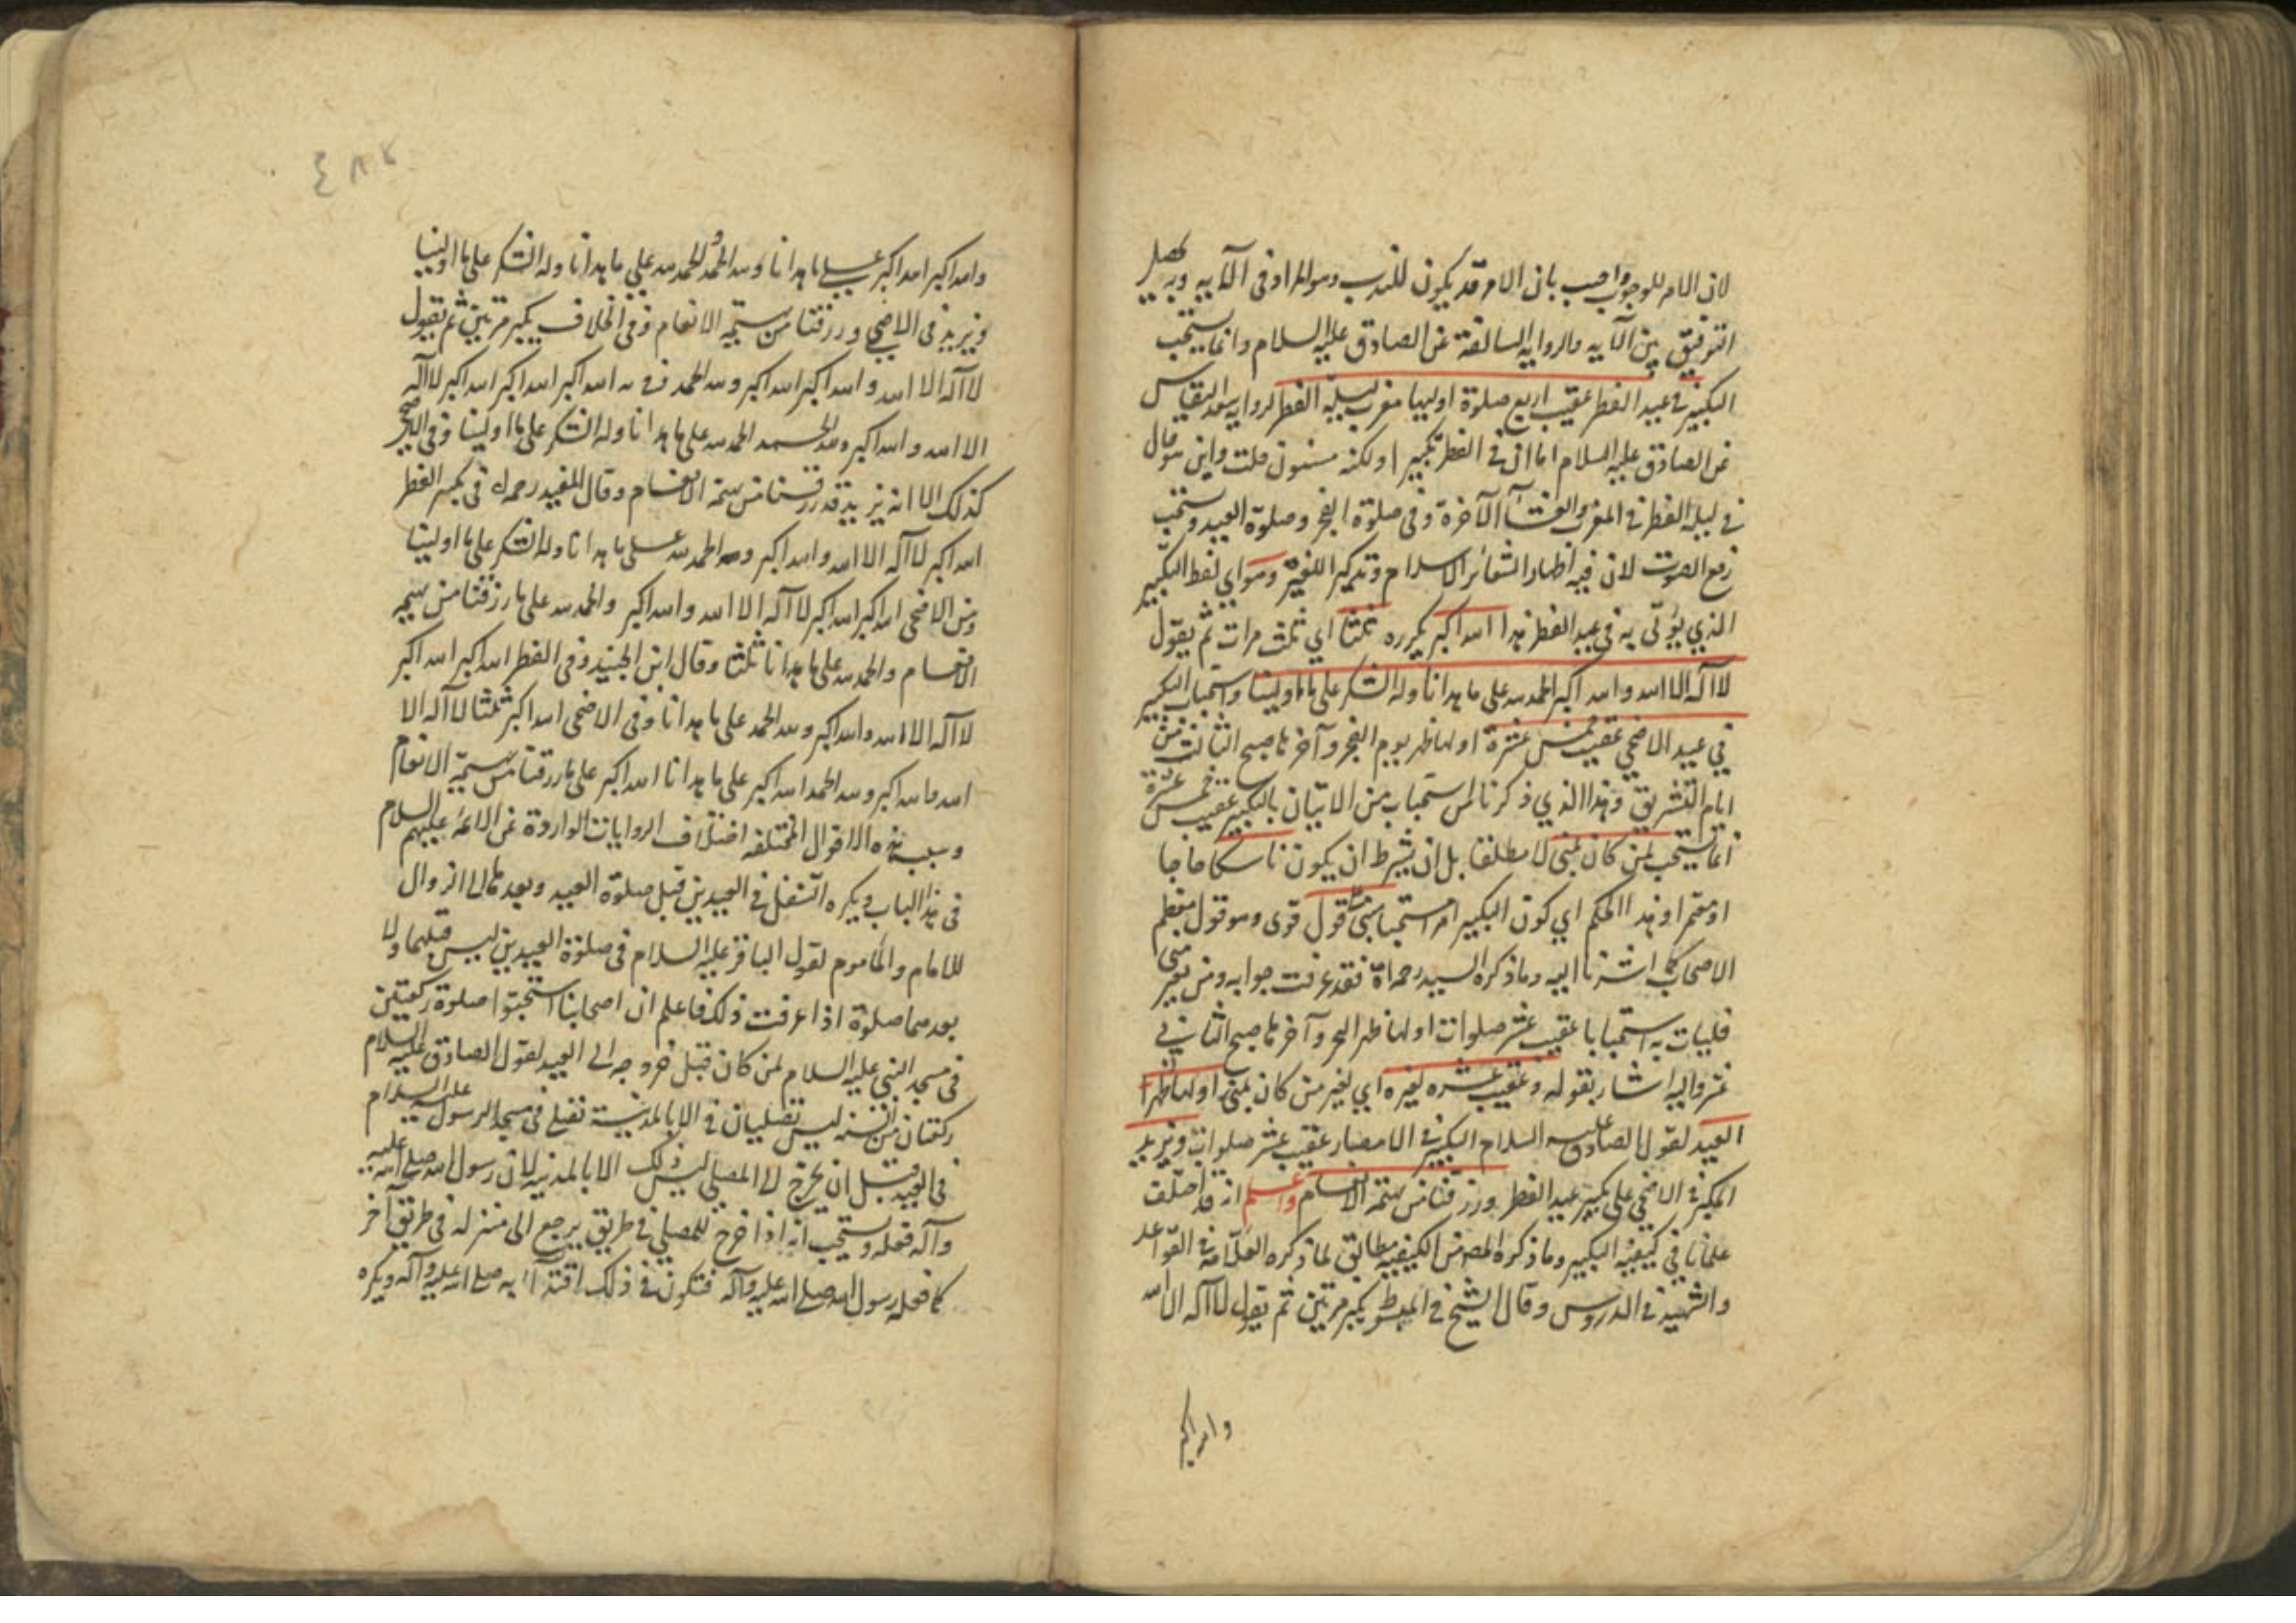 لان الامر للوجوب واجيب بان الامر قد يكون للندب وهو المراد في الآيه وبه يحصل
التوفيق بين الآيه والروايه السالفة عن الصادق عليه السلام وانما يستحب
التكبير في عيد الفطر عقيب اربع صلوة اوليها مغرب ليلة الفطر لرواية سعد النقاش
عن الصادق عليه السلام اما ان في الفطر تكبيرا ولكنه مسنون قلت واين هو قال
في ليلة الفطر في المغرب والعشآء الآخرة وفي صلوة الفجر وصلوة العيد ويستحب
رفع الصوت لان فيه اظهارا لشعائر الاسلام وتذكيرا للغير وهو اي لفظ التكبير
الذي يؤتى به في عيد الفطر هذا الله اكبر يكرره ثلثا اي ثلث مرات ثم يقول
لا اله الا الله والله اكبر الحمد لله على ما هدانا وله الشكر على ما اولينا واستحباب التكبير
في عيد الاضحى عقيب خمس عشرة اولها ظهر يوم النحر وآخرها صبح الثالث من
ايام التشريق وهذا الذي ذكرنا من استحباب من الاتيان بالتكبير عقيب خمس عشرة
انما يستحب لمن كان بمنى لا مطلقا بل ان يشترط ان يكون ناسكا حاجا
او معتمرا وهذا الحكم اي كون التكبير امرا مستحبا مبنى على قول قوى وهو قول معظم
الاصحاب كما اشرنا اليه وما ذكره السيد رحمه الله فقد عرفت جوابه ومن بغير منى
فليات به استحبابا عقيب عشر صلوات اولها ظهر النحر وآخرها صبح الثاني
عشر واليه اشار بقوله وعقيب عشره لغيره اي لغير من كان بمنى اولها ظهر
العيد لقول الصادق عليه السلام التكبير في الامصار عقيب عشر صلوات ويزيد
المكبر في الاضحى على تكبير عيد الفطر ورزقنا من بهيمة الانعام واعلم انه قد اختلف
علمائنا في كيفية التكبير وما ذكره المصنف من الكيفيه مطابق لما ذكره العلامة في القواعد
والشهيد في الدروس وقال الشيخ في المبسوط يكبر مرتين ثم يقول لا آله الا الله
والله اكبر
والله اكبر الله اكبر على ما هدانا ولله الحمد والحمد لله على ما هدانا وله الشكر على ما اولينا
ويزيد في الاضحى ورزقنا من بهيمة الانعام وفي الخلاف يكبر مرتين ثم يقول
لا آله الا الله والله اكبر الله اكبر ولله الحمد الله اكبر الله اكبر الله اكبر لا آله
الا الله والله اكبر ولله الحمد الحمد لله على ما هدانا وله الشكر على ما اولينا وفي الاضحى
كذلك الا انه يزيد فيه ورزقنا من بهيمة الانعام وقال المفيد رحمه الله في تكبير الفطر
الله اكبر لا آله الا الله والله اكبر والحمد لله على ما هدانا وله الشكر على ما اولينا
وفي الاضحى الله اكبر الله اكبر لا آله الا الله والله اكبر والحمد لله على ما رزقنا من بهيمة
الانعام والحمد لله على ما هدانا ثلثا وقال ابن الجنيد وفي الفطر الله اكبر الله اكبر
لا آله الا الله والله اكبر ولله الحمد على ما هدانا وفي الاضحى الله اكبر ثلثا لا آله الا
الله والله اكبر ولله الحمد الله اكبر على ما هدانا الله اكبر على ما رزقنا من بهيمة الانعام
وسبب هذه الاقوال المختلفه اختلاف الروايات الواردة عن الائمة عليهم السلام
في هذا الباب ويكره التنفل في العيدين قبل صلوة العيد وبعدها الى الزوال
للامام والمأموم لقول الباقر عليه السلام في صلوة العيدين ليس قبلهما ولا
بعدهما صلوة اذا عرفت ذلك فاعلم ان اصحابنا استحبوا صلوة ركعتين
في مسجد النبي عليه السلام لمن كان قبل خروجه الى العيد لقول الصادق عليه السلام
ركعتان من السنه ليس تصليان في الا بالمدينة تصلى في مسجد الرسول عليه السلام
في العيد قبل ان يخرج الى المصلى ليس ذلك الا بالمدينه لان رسول الله صلى الله عليه
وآله فعله ويستحب انه اذا خرج للمصلى في طريق يرجع الى منزله في طريق آخر
كما فعله رسول الله صلى الله عليه وآله فتكون في ذلك اقتدآء به صلى الله عليه وآله ويكره